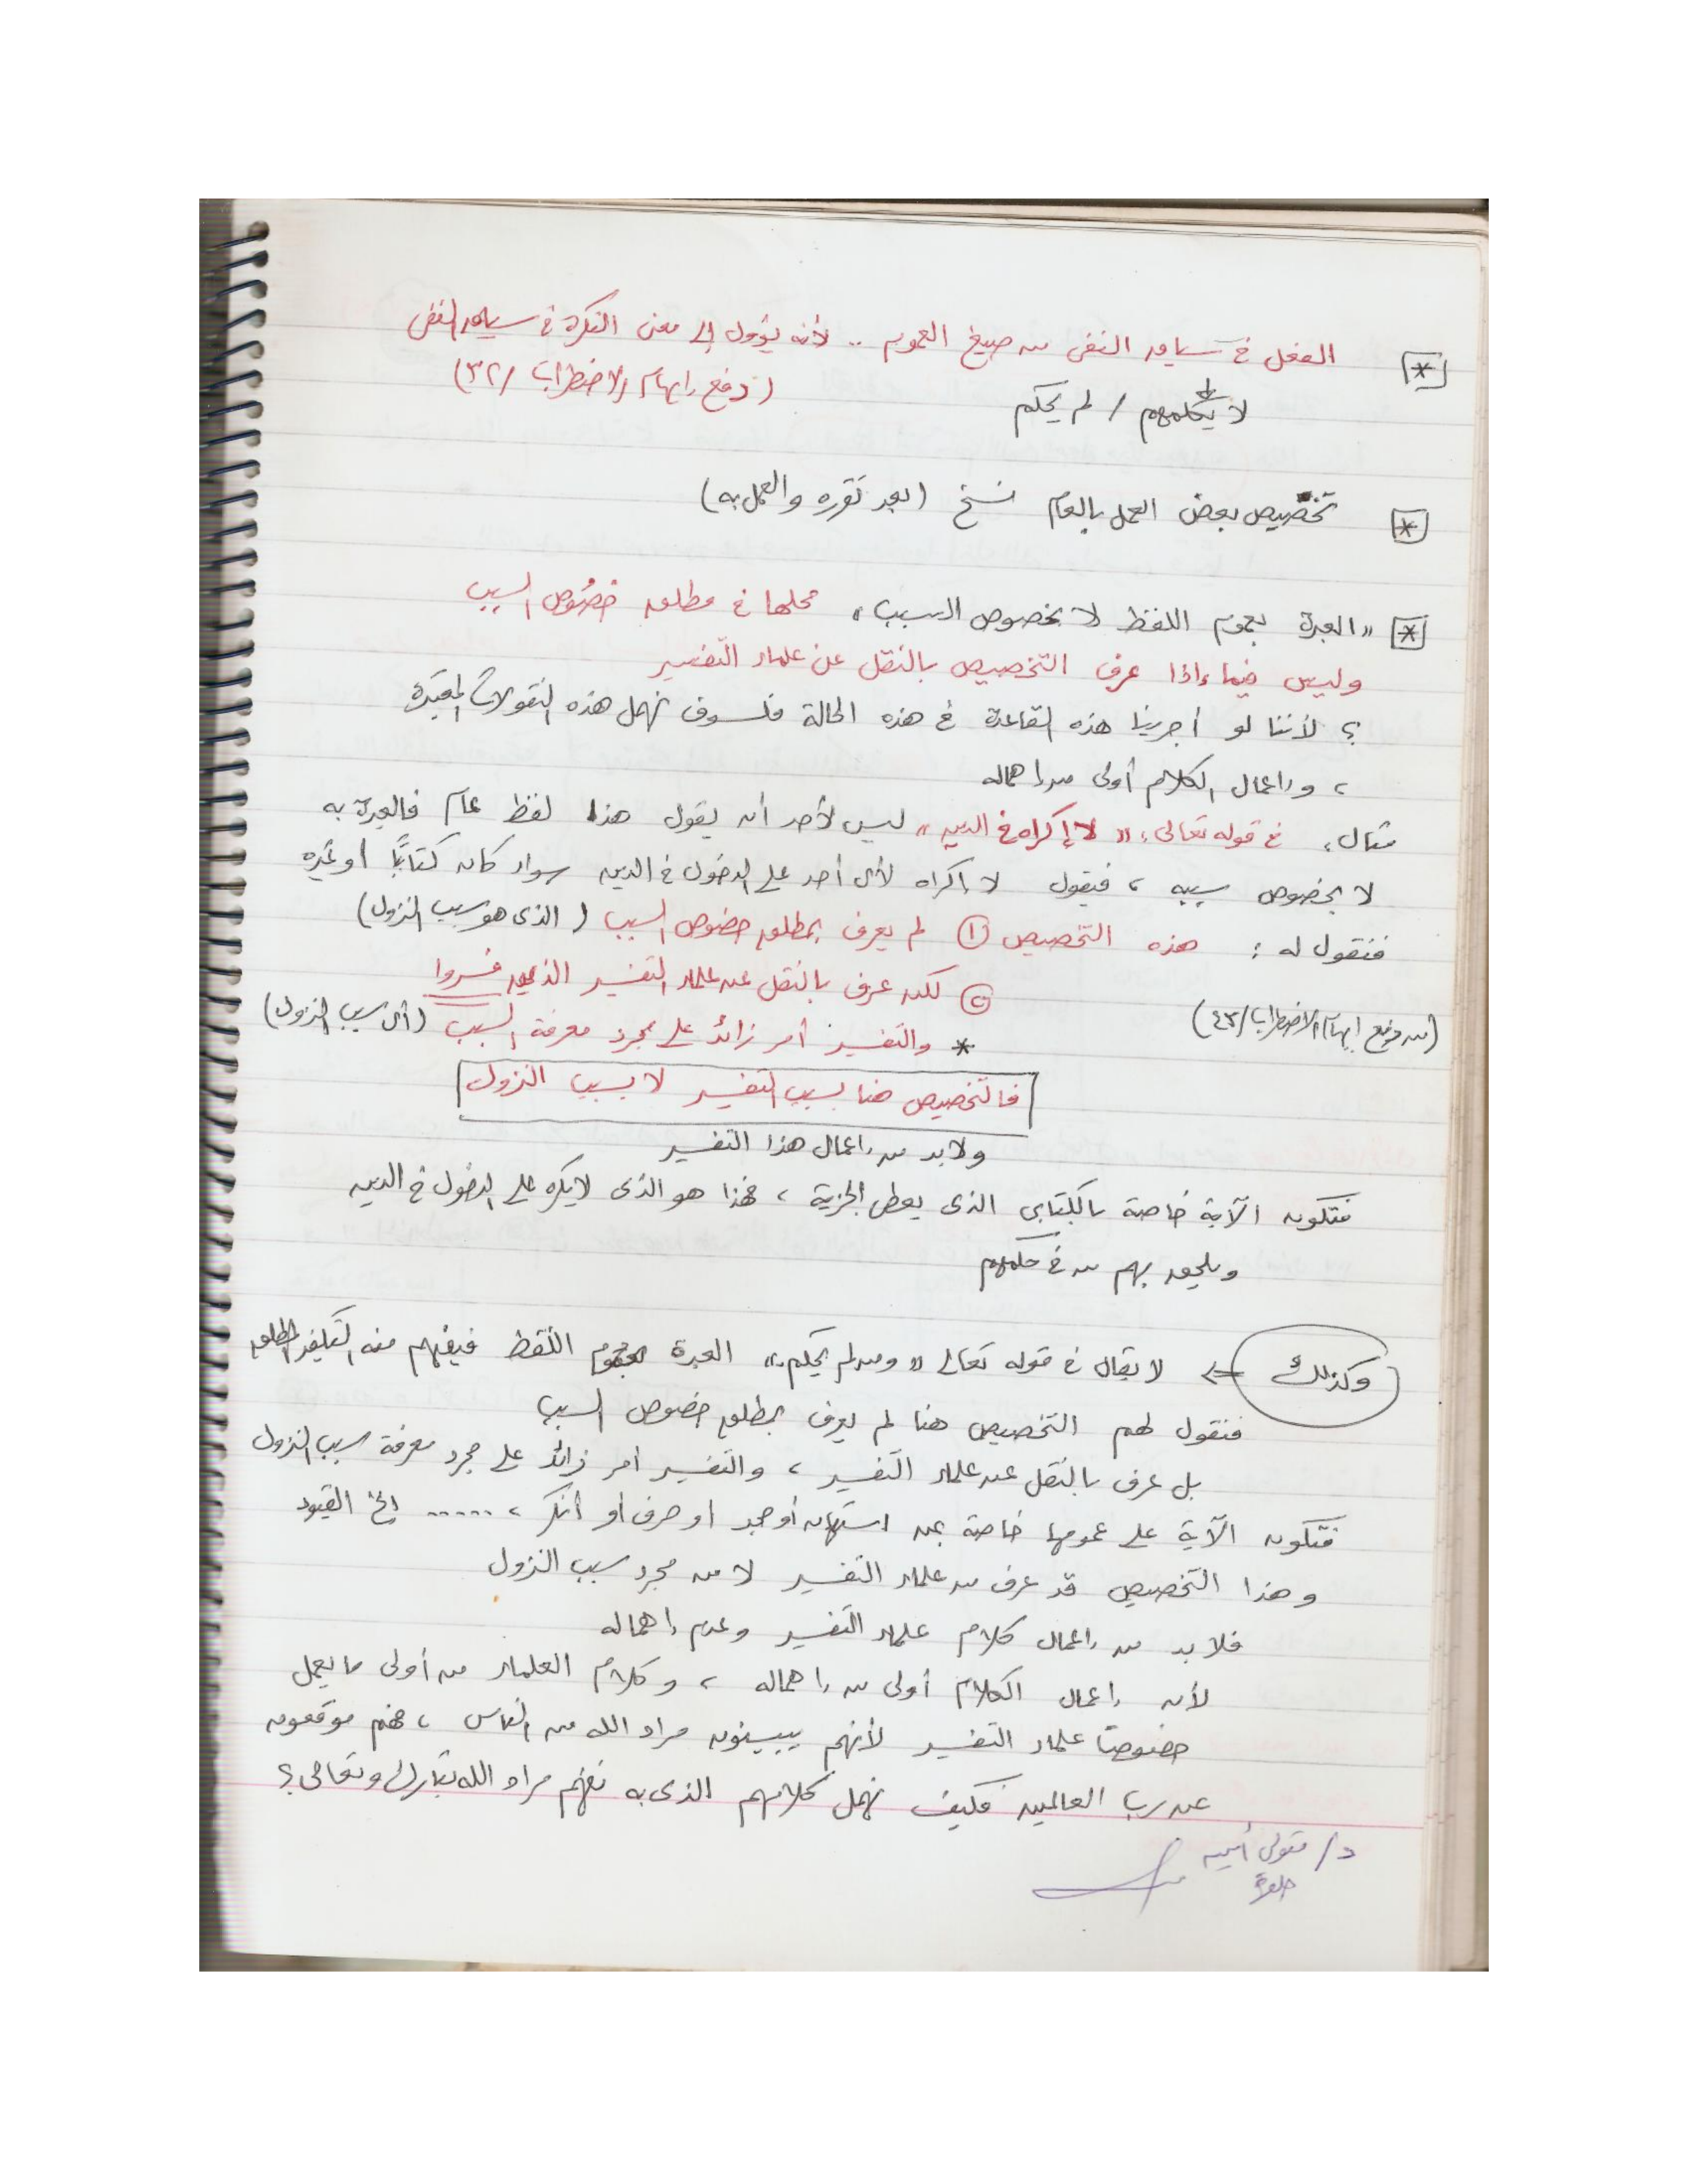 * الفعل في سياق النفي من صيغ العموم .. لأنه يؤول إلى معنى النكرة في سياق النفي
(دفع إيهام الاضطراب / ٣٢)
لا يكلمهم / لم يحكم
* تخصيص بعض العمل بالعام نسخ (بعد تقرره والعمل به)
* "العبرة بعموم اللفظ لا بخصوص السبب" محلها في مطلق خصوص السبب
وليس فيما إذا عرف التخصيص بالنقل عن علماء التفسير
؟ لأننا لو أجرينا هذه القاعدة في هذه الحالة فلسوف نهمل هذه النقولات المقيدة
، وإعمال الكلام أولى من إهماله
مثال: في قوله تعالى: "لا إكراه في الدين" ليس لأحد أن يقول هذا لفظ عام فالعبرة به
لا بخصوص سببه ، فيقول لا إكراه لأي أحد على الدخول في الدين سواء كان كتابيًا أو غيره
فنقول له : هذه التخصيص ① لم يعرف بمطلق خصوص السبب (الذي هو سبب النزول)
② لكن عرف بالنقل عن علماء التفسير الذين فسروا
* والتفسير أمر زائد على مجرد معرفة السبب (أي سبب النزول)
(من دفع إيهام الاضطراب / ٤٣)
فالتخصيص هنا بسبب التفسير لا بسبب النزول
ولابد من إعمال هذا التفسير
فتكون الآية خاصة بالكتابي الذي يعطي الجزية ، فهذا هو الذي لا يكره على الدخول في الدين
ويلحق بهم من في حكمهم
وكذلك ⇐ لا يقال في قوله تعالى "ومن لم يحكم.." العبرة بعموم اللفظ فيفهم منه التكفير المطلق
فنقول لهم التخصيص هنا لم يعرف بمطلق خصوص السبب
بل عرف بالنقل عن علماء التفسير ، والتفسير أمر زائد على مجرد معرفة سبب النزول
فتكون الآية على عمومها خاصة بمن استهان أو جحد أو حرف أو أنكر ، ...... إلخ القيود
وهذا التخصيص قد عرف من علماء التفسير لا من مجرد سبب النزول
فلابد من إعمال كلام علماء التفسير وعدم إهماله
لأن إعمال الكلام أولى من إهماله ، وكلام العلماء من أولى ما يعمل
خصوصًا علماء التفسير لأنهم يبينون مراد الله من الناس ، فهم موقعون
عن رب العالمين فكيف نهمل كلامهم الذي به نفهم مراد الله تبارك وتعالى ؟
د/ متولي أمين
حلوة